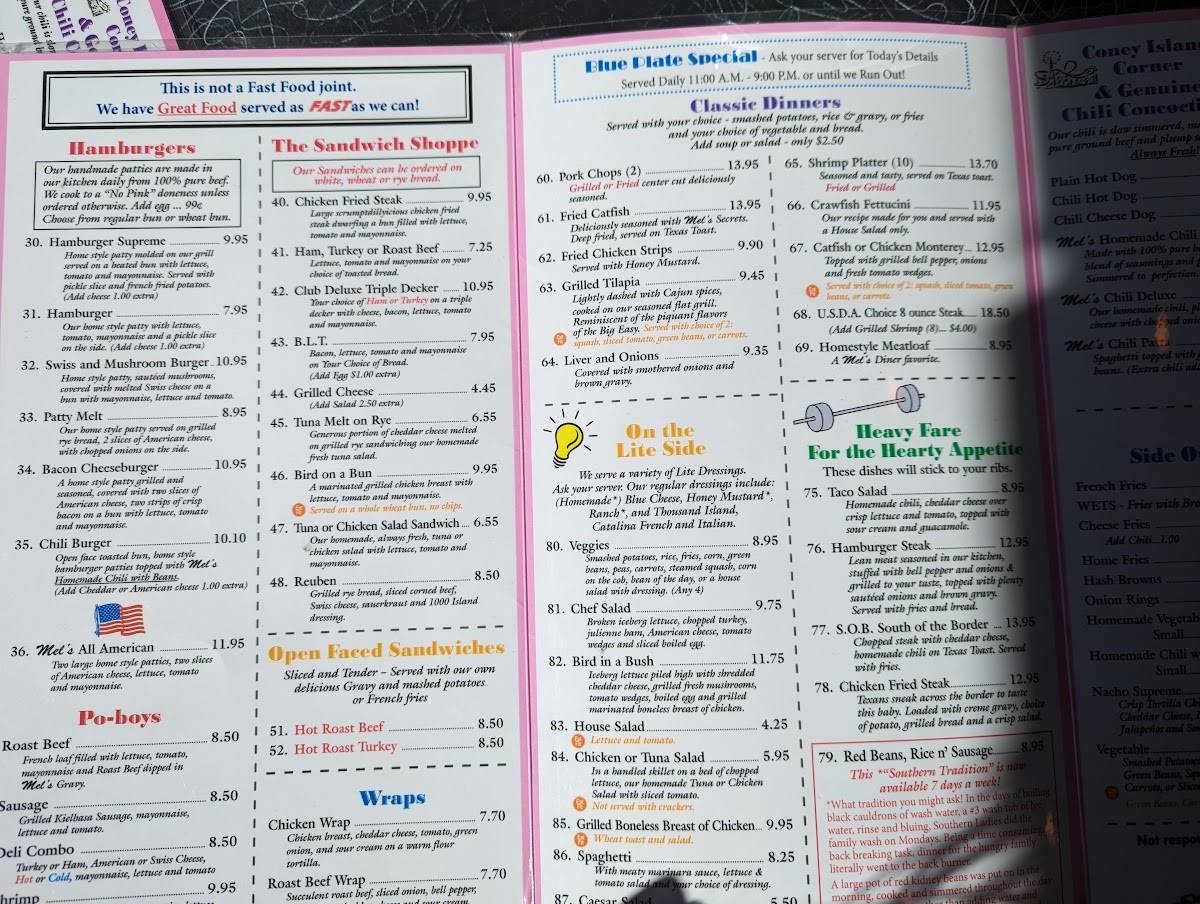 This is not a Fast Food joint.
We have Great Food served as FAST as we can!
Hamburgers
Our handmade patties are made in
our kitchen daily from 100% pure beef.
We cook to a "No Pink" doneness unless
ordered otherwise. Add egg ... 99¢
Choose from regular bun or wheat bun.
30. Hamburger Supreme 9.95
Home style patty molded on our grill
served on a heated bun with lettuce,
tomato and mayonnaise. Served with
pickle slice and french fried potatoes.
(Add cheese 1.00 extra)
31. Hamburger 7.95
Our home style patty with lettuce,
tomato, mayonnaise and a pickle slice
on the side. (Add cheese 1.00 extra)
32. Swiss and Mushroom Burger 10.95
Home style patty, sautéed mushrooms,
covered with melted Swiss cheese on a
bun with mayonnaise, lettuce and tomato.
33. Patty Melt 8.95
Our home style patty served on grilled
rye bread, 2 slices of American cheese,
with chopped onions on the side.
34. Bacon Cheeseburger 10.95
A home style patty grilled and
seasoned, covered with two slices of
American cheese, two strips of crisp
bacon on a bun with lettuce, tomato
and mayonnaise.
35. Chili Burger 10.10
Open face toasted bun, home style
hamburger patties topped with Mel's
Homemade Chili with Beans.
(Add Cheddar or American cheese 1.00 extra)
36. Mel's All American 11.95
Two large home style patties, two slices
of American cheese, lettuce, tomato
and mayonnaise.
Po-boys
Roast Beef 8.50
French loaf filled with lettuce, tomato,
mayonnaise and Roast Beef dipped in
Mel's Gravy.
Sausage 8.50
Grilled Kielbasa Sausage, mayonnaise,
lettuce and tomato.
Deli Combo 8.50
Turkey or Ham, American or Swiss Cheese,
Hot or Cold, mayonnaise, lettuce and tomato
hrimp 9.95
The Sandwich Shoppe
Our Sandwiches can be ordered on
white, wheat or rye bread.
40. Chicken Fried Steak 9.95
Large scrumptdillyicious chicken fried
steak dwarfing a bun filled with lettuce,
tomato and mayonnaise.
41. Ham, Turkey or Roast Beef 7.25
Lettuce, tomato and mayonnaise on your
choice of toasted bread.
42. Club Deluxe Triple Decker 10.95
Your choice of Ham or Turkey on a triple
decker with cheese, bacon, lettuce, tomato
and mayonnaise.
43. B.L.T. 7.95
Bacon, lettuce, tomato and mayonnaise
on Your Choice of Bread.
(Add Egg $1.00 extra)
44. Grilled Cheese 4.45
(Add Salad 2.50 extra)
45. Tuna Melt on Rye 6.55
Generous portion of cheddar cheese melted
on grilled rye sandwiching our homemade
fresh tuna salad.
46. Bird on a Bun 9.95
A marinated grilled chicken breast with
lettuce, tomato and mayonnaise.
Served on a whole wheat bun, no chips.
47. Tuna or Chicken Salad Sandwich 6.55
Our homemade, always fresh, tuna or
chicken salad with lettuce, tomato and
mayonnaise.
48. Reuben 8.50
Grilled rye bread, sliced corned beef,
Swiss cheese, sauerkraut and 1000 Island
dressing.
Open Faced Sandwiches
Sliced and Tender – Served with our own
delicious Gravy and mashed potatoes
or French fries
51. Hot Roast Beef 8.50
52. Hot Roast Turkey 8.50
Wraps
Chicken Wrap 7.70
Chicken breast, cheddar cheese, tomato, green
onion, and sour cream on a warm flour
tortilla.
Roast Beef Wrap 7.70
Succulent roast beef, sliced onion, bell pepper,
Blue Plate Special - Ask your server for Today's Details
Served Daily 11:00 A.M. - 9:00 P.M. or until we Run Out!
Classic Dinners
Served with your choice - smashed potatoes, rice & gravy, or fries
and your choice of vegetable and bread.
Add soup or salad - only $2.50
60. Pork Chops (2) 13.95
Grilled or Fried center cut deliciously
seasoned.
61. Fried Catfish 13.95
Deliciously seasoned with Mel's Secrets.
Deep fried, served on Texas Toast.
62. Fried Chicken Strips 9.90
Served with Honey Mustard.
63. Grilled Tilapia 9.45
Lightly dashed with Cajun spices,
cooked on our seasoned flat grill.
Reminiscent of the piquant flavors
of the Big Easy. Served with choice of 2:
squash, sliced tomato, green beans, or carrots.
64. Liver and Onions 9.35
Covered with smothered onions and
brown gravy.
65. Shrimp Platter (10) 13.70
Seasoned and tasty, served on Texas toast.
Fried or Grilled
66. Crawfish Fettucini 11.95
Our recipe made for you and served with
a House Salad only.
67. Catfish or Chicken Monterey 12.95
Topped with grilled bell pepper, onions
and fresh tomato wedges.
Served with choice of 2: squash, sliced tomato, green
beans, or carrots.
68. U.S.D.A. Choice 8 ounce Steak 18.50
(Add Grilled Shrimp (8)... $4.00)
69. Homestyle Meatloaf 8.95
A Mel's Diner favorite.
On the
Lite Side
We serve a variety of Lite Dressings.
Ask your server. Our regular dressings include:
(Homemade*) Blue Cheese, Honey Mustard*,
Ranch*, and Thousand Island,
Catalina French and Italian.
80. Veggies 8.95
Smashed potatoes, rice, fries, corn, green
beans, peas, carrots, steamed squash, corn
on the cob, bean of the day, or a house
salad with dressing. (Any 4)
81. Chef Salad 9.75
Broken iceberg lettuce, chopped turkey,
julienne ham, American cheese, tomato
wedges and sliced boiled egg.
82. Bird in a Bush 11.75
Iceberg lettuce piled high with shredded
cheddar cheese, grilled fresh mushrooms,
tomato wedges, boiled egg and grilled
marinated boneless breast of chicken.
83. House Salad 4.25
Lettuce and tomato.
84. Chicken or Tuna Salad 5.95
In a handled skillet on a bed of chopped
lettuce, our homemade Tuna or Chicken
Salad with sliced tomato.
Not served with crackers.
85. Grilled Boneless Breast of Chicken 9.95
Wheat toast and salad.
86. Spaghetti 8.25
With meaty marinara sauce, lettuce &
tomato salad and your choice of dressing.
87. Caesar Salad 5.50
Heavy Fare
For the Hearty Appetite
These dishes will stick to your ribs.
75. Taco Salad 8.95
Homemade chili, cheddar cheese over
crisp lettuce and tomato, topped with
sour cream and guacamole.
76. Hamburger Steak 12.95
Lean meat seasoned in our kitchen,
stuffed with bell pepper and onions &
grilled to your taste, topped with plenty
sautéed onions and brown gravy.
Served with fries and bread.
77. S.O.B. South of the Border 13.95
Chopped steak with cheddar cheese,
homemade chili on Texas Toast. Served
with fries.
78. Chicken Fried Steak 12.95
Texans sneak across the border to taste
this baby. Loaded with creme gravy, choice
of potato, grilled bread and a crisp salad.
79. Red Beans, Rice n' Sausage 8.95
This *"Southern Tradition" is now
available 7 days a week!
*What tradition you might ask! In the days of boiling
black cauldrons of wash water, a #3 wash tub of
water, rinse and bluing, Southern Ladies did the
family wash on Mondays. Being a time consuming,
back breaking task, dinner for the hungry family
literally went to the back burner.
A large pot of red kidney beans was put on in the
morning, cooked and simmered throughout the day
than adding water and
Coney Island
Corner
& Genuine
Chili Concoctions
Our chili is slow simmered,
pure ground beef and plump
Always Fresh!
Plain Hot Dog
Chili Hot Dog
Chili Cheese Dog
Mel's Homemade Chili
Made with 100% pure
blend of seasonings and
Simmered to perfection.
Mel's Chili Deluxe
Our homemade chili,
cheese with chopped onions
Mel's Chili
Spaghetti topped with
beans. (Extra chili
Side
French Fries
WETS - Fries with
Cheese Fries
Add Chili...1.00
Home Fries
Hash Browns
Onion Rings
Homemade Vegetable
Small
Homemade Chili
Small
Nacho Supreme
Crisp Tortilla
Cheddar Cheese,
Jalapeños and
Vegetable
Smashed Potatoes
Green Beans,
Carrots, or
Green Beans,
Not